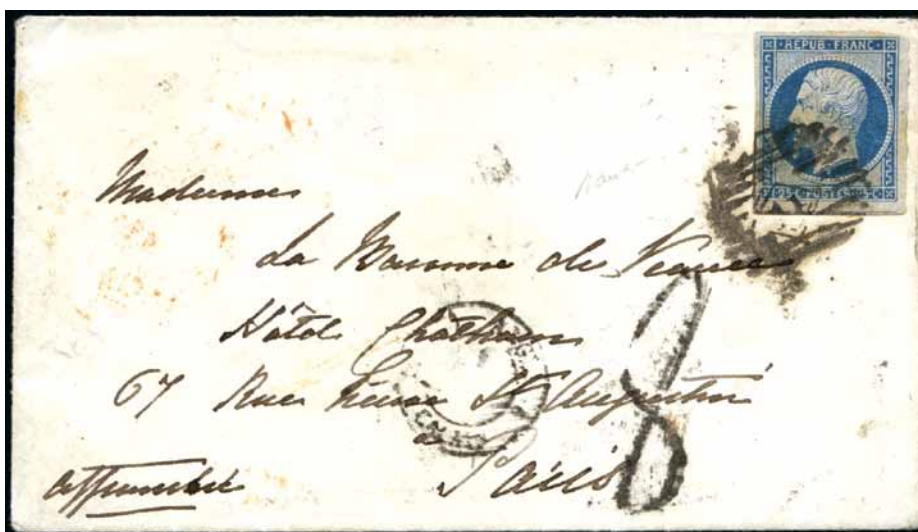 REPUB. FRANC.
25 c. POSTES 25 c.
Madame
La Baronne de
Hôtel Chatham
67 Rue Neuve St Augustin
à
Paris
affranchie
8